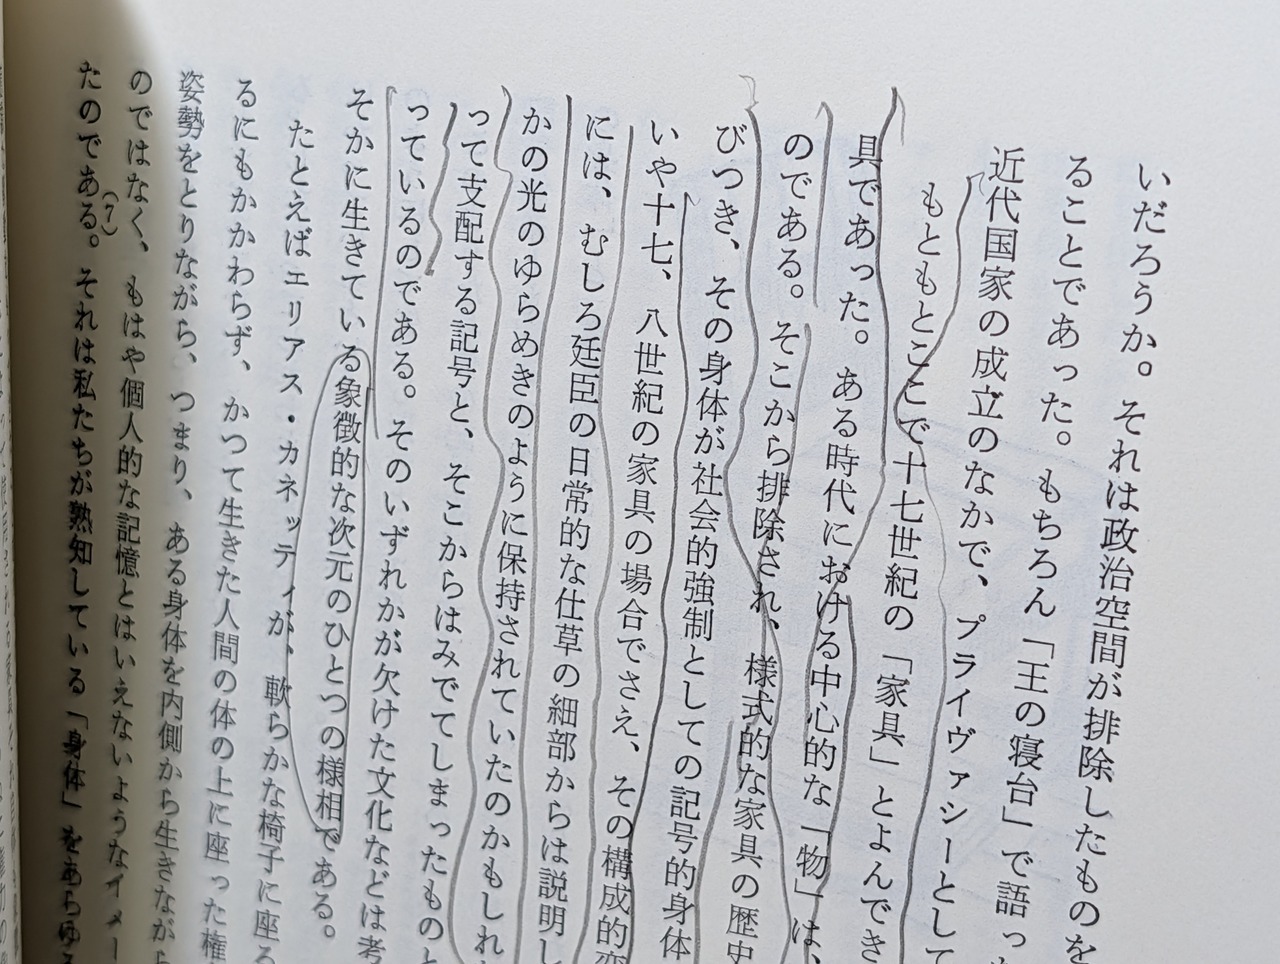 いだろうか。それは政治空間が排除したものを
ることであった。もちろん「王の寝台」で語っ
近代国家の成立のなかで、プライヴァシーとして
もともとここで十七世紀の「家具」とよんでき
具であった。ある時代における中心的な「物」は、
のである。そこから排除され、様式的な家具の歴史
びつき、その身体が社会的強制としての記号的身体
いや十七、八世紀の家具の場合でさえ、その構成的変
には、むしろ廷臣の日常的な仕草の細部からは説明し
かの光のゆらめきのように保持されていたのかもしれ
って支配する記号と、そこからはみでてしまったものと
っているのである。そのいずれかが欠けた文化などは考
そかに生きている象徴的な次元のひとつの様相である。
たとえばエリアス・カネッティが、軟らかな椅子に座る
るにもかかわらず、かつて生きた人間の体の上に座った権
姿勢をとりながら、つまり、ある身体を内側から生きながら
のではなく、もはや個人的な記憶とはいえないようなイメー
(7)
たのである。それは私たちが熟知している「身体」をあらゆる